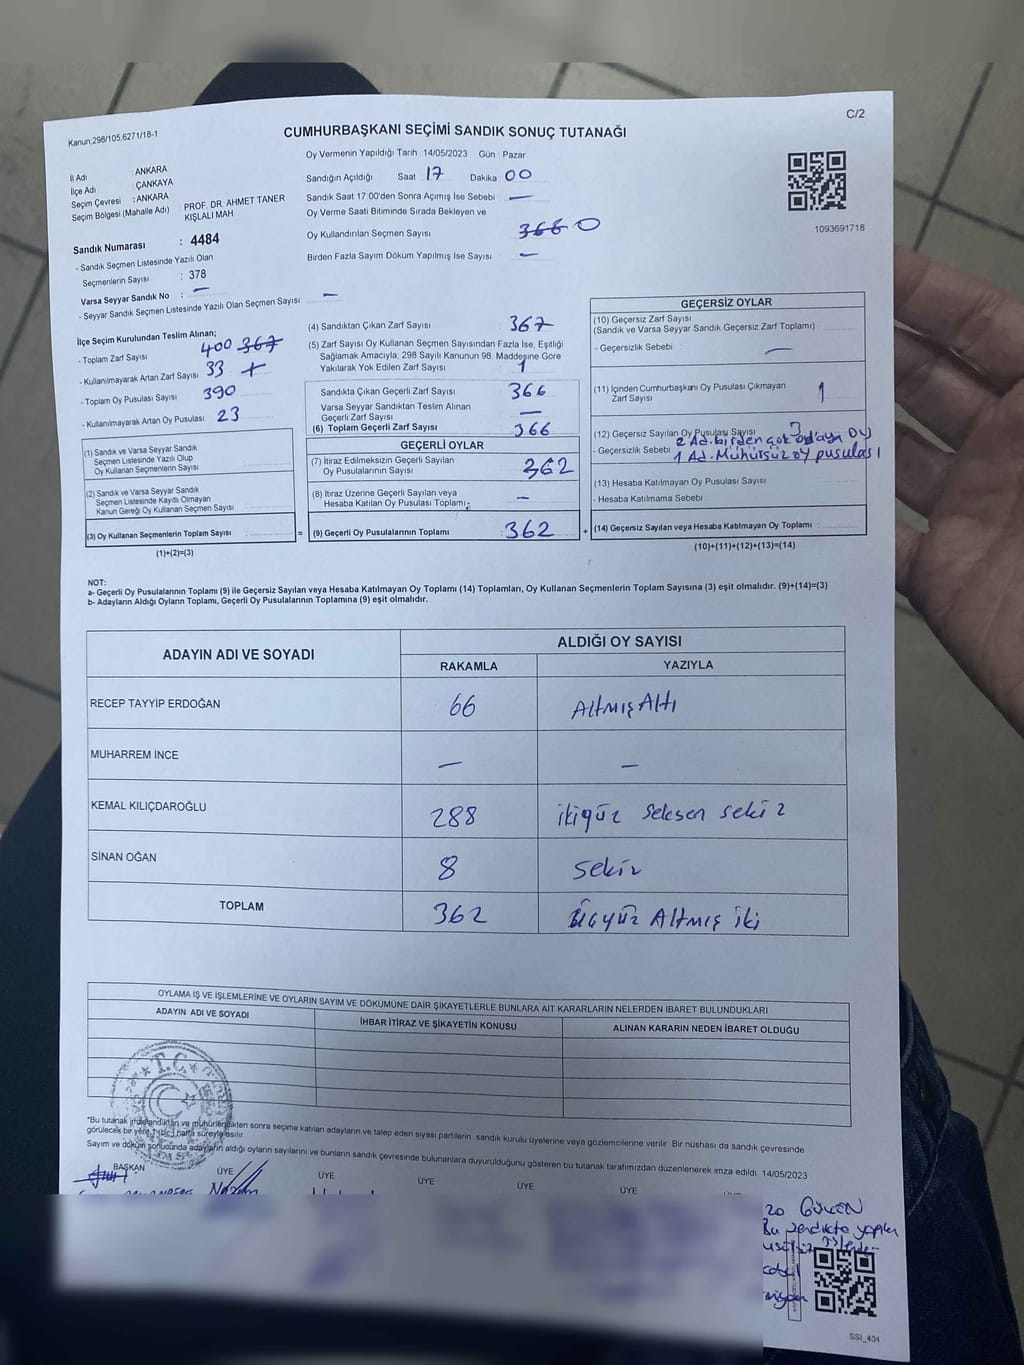 Kanun:298/105,6271/18-1
C/2
CUMHURBAŞKANI SEÇİMİ SANDIK SONUÇ TUTANAĞI
İl Adı : ANKARA
İlçe Adı : ÇANKAYA
Seçim Çevresi : ANKARA
Seçim Bölgesi (Mahalle Adı) : PROF. DR. AHMET TANER KIŞLALI MAH.
Sandık Numarası : 4484
- Sandık Seçmen Listesinde Yazılı Olan
Seçmenlerin Sayısı : 378
Varsa Seyyar Sandık No : —
- Seyyar Sandık Seçmen Listesinde Yazılı Olan Seçmen Sayısı: —
Oy Vermenin Yapıldığı Tarih 14/05/2023 Gün Pazar
Sandığın Açıldığı Saat 17 Dakika 00
Sandık Saat 17:00'den Sonra Açımış İse Sebebi : —
Oy Verme Saati Bitiminde Sırada Bekleyen ve
Oy Kullandırılan Seçmen Sayısı 366 0
Birden Fazla Sayım Döküm Yapılmış İse Sayısı : —
1093691718
İlçe Seçim Kurulundan Teslim Alınan;
- Toplam Zarf Sayısı 400 367
- Kullanılmayarak Artan Zarf Sayısı 33 +
- Toplam Oy Pusulası Sayısı 390
- Kullanılmayarak Artan Oy Pusulası : 23
(1) Sandık ve Varsa Seyyar Sandık
Seçmen Listesinde Yazılı Olup
Oy Kullanan Seçmenlerin Sayısı
(2) Sandık ve Varsa Seyyar Sandık
Seçmen Listesinde Kayıtlı Olmayan
Kanun Gereği Oy Kullanan Seçmen Sayısı
(3) Oy Kullanan Seçmenlerin Toplam Sayısı =
(1)+(2)=(3)
(4) Sandıktan Çıkan Zarf Sayısı : 367
(5) Zarf Sayısı Oy Kullanan Seçmen Sayısından Fazla İse, Eşitliği
Sağlamak Amacıyla, 298 Sayılı Kanunun 98. Maddesine Göre
Yakılarak Yok Edilen Zarf Sayısı : 1
Sandıkta Çıkan Geçerli Zarf Sayısı : 366
Varsa Seyyar Sandıktan Teslim Alınan
Geçerli Zarf Sayısı : —
(6) Toplam Geçerli Zarf Sayısı : 366
GEÇERLİ OYLAR
(7) İtiraz Edilmeksizin Geçerli Sayılan
Oy Pusulalarının Sayısı : 362
(8) İtiraz Üzerine Geçerli Sayılan veya
Hesaba Katılan Oy Pusulası Toplamı: —
(9) Geçerli Oy Pusulalarının Toplamı : 362 +
GEÇERSİZ OYLAR
(10) Geçersiz Zarf Sayısı
(Sandık ve Varsa Seyyar Sandık Geçersiz Zarf Toplamı)
- Geçersizlik Sebebi : —
(11) İçinden Cumhurbaşkanı Oy Pusulası Çıkmayan
Zarf Sayısı : 1
(12) Geçersiz Sayılan Oy Pusulası Sayısı : 3
- Geçersizlik Sebebi 2 Ad. birden çok adaya oy
1 Ad. Mühürsüz oy pusulası
(13) Hesaba Katılmayan Oy Pusulası Sayısı
- Hesaba Katılmama Sebebi
(14) Geçersiz Sayılan veya Hesaba Katılmayan Oy Toplamı :
(10)+(11)+(12)+(13)=(14)
NOT:
a- Geçerli Oy Pusulalarının Toplamı (9) ile Geçersiz Sayılan veya Hesaba Katılmayan Oy Toplamı (14) Toplamları, Oy Kullanan Seçmenlerin Toplam Sayısına (3) eşit olmalıdır. (9)+(14)=(3)
b- Adayların Aldığı Oyların Toplamı, Geçerli Oy Pusulalarının Toplamına (9) eşit olmalıdır.
ADAYIN ADI VE SOYADI
ALDIĞI OY SAYISI
RAKAMLA YAZIYLA
RECEP TAYYİP ERDOĞAN 66 Altmış Altı
MUHARREM İNCE — —
KEMAL KILIÇDAROĞLU 288 ikiyüz seksen sekiz
SİNAN OĞAN 8 sekiz
TOPLAM 362 üçyüz Altmış iki
OYLAMA İŞ VE İŞLEMLERİNE VE OYLARIN SAYIM VE DÖKÜMÜNE DAİR ŞİKAYETLERLE BUNLARA AİT KARARLARIN NELERDEN İBARET BULUNDUKLARI
ADAYIN ADI VE SOYADI
İHBAR İTİRAZ VE ŞİKAYETİN KONUSU
ALINAN KARARIN NEDEN İBARET OLDUĞU
T.C.
*Bu tutanak imzalandıktan ve mühürlendikten sonra seçime katılan adayların ve talep eden siyasi partilerin sandık kurulu üyelerine veya gözlemcilerine verilir. Bir nüshası da sandık çevresinde
görülecek bir yere 1 (bir) hafta süreyle asılır.
Sayım ve döküm sonucunda adayların aldığı oyların sayılarını ve bunların sandık çevresinde bulunanlara duyurulduğunu gösteren bu tutanak tarafımızdan düzenlenerek imza edildi. 14/05/2023
BAŞKAN ÜYE ÜYE ÜYE ÜYE ÜYE
Bu
SSI_404